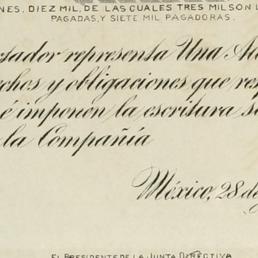 NES, DIEZ MIL, DE LAS CUALES TRES MIL SON L
PAGADAS, Y SIETE MIL PAGADORAS.
tador representa Una Ac
chos y obligaciones que
é imponen la escritura
la Compañía
México, 28 de
EL PRESIDENTE DE LA JUNTA DIRECTIVA